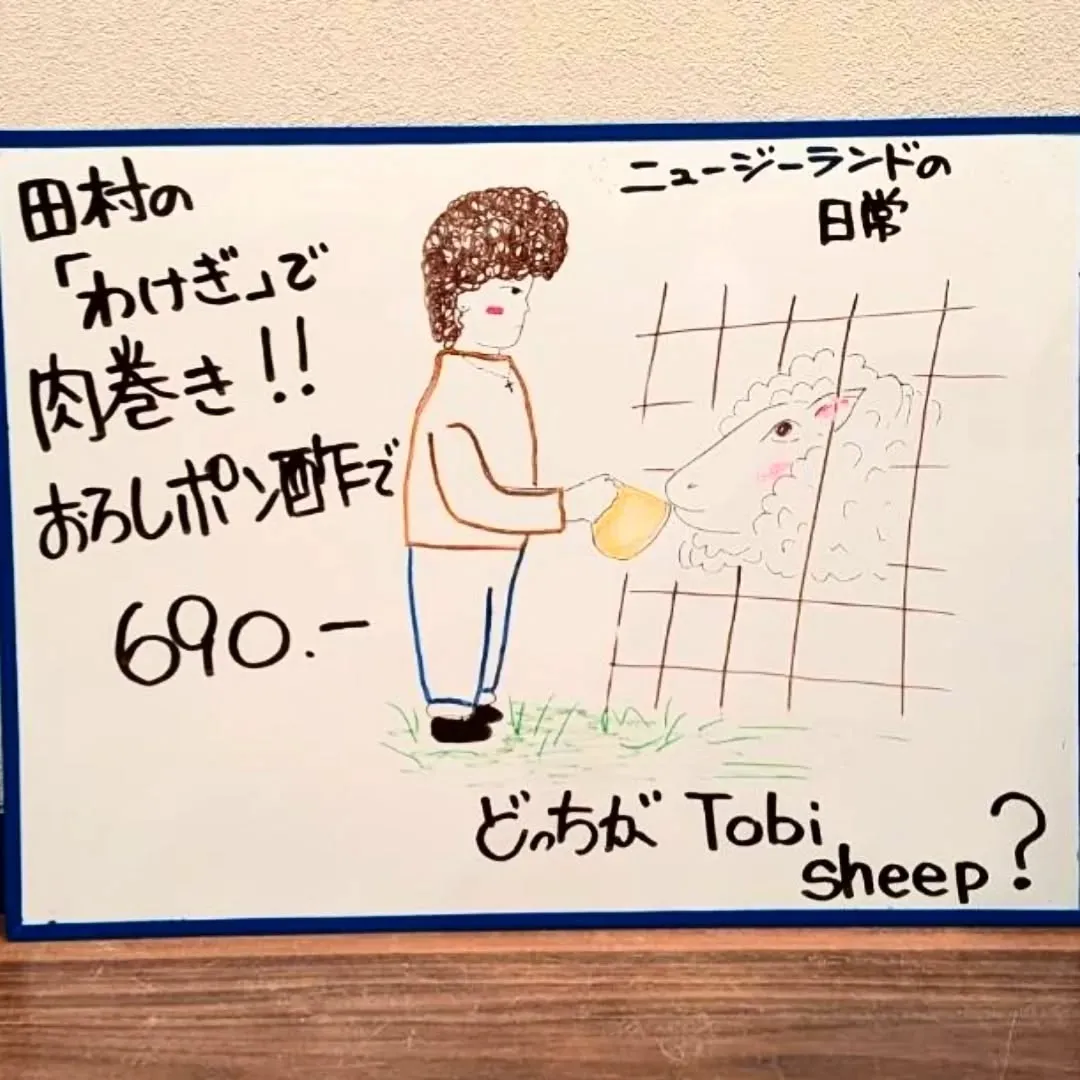 田村の
「わけぎ」で
肉巻き!!
おろしポン酢で
690.-
ニュージーランドの
日常
どっちが Tobi
sheep?